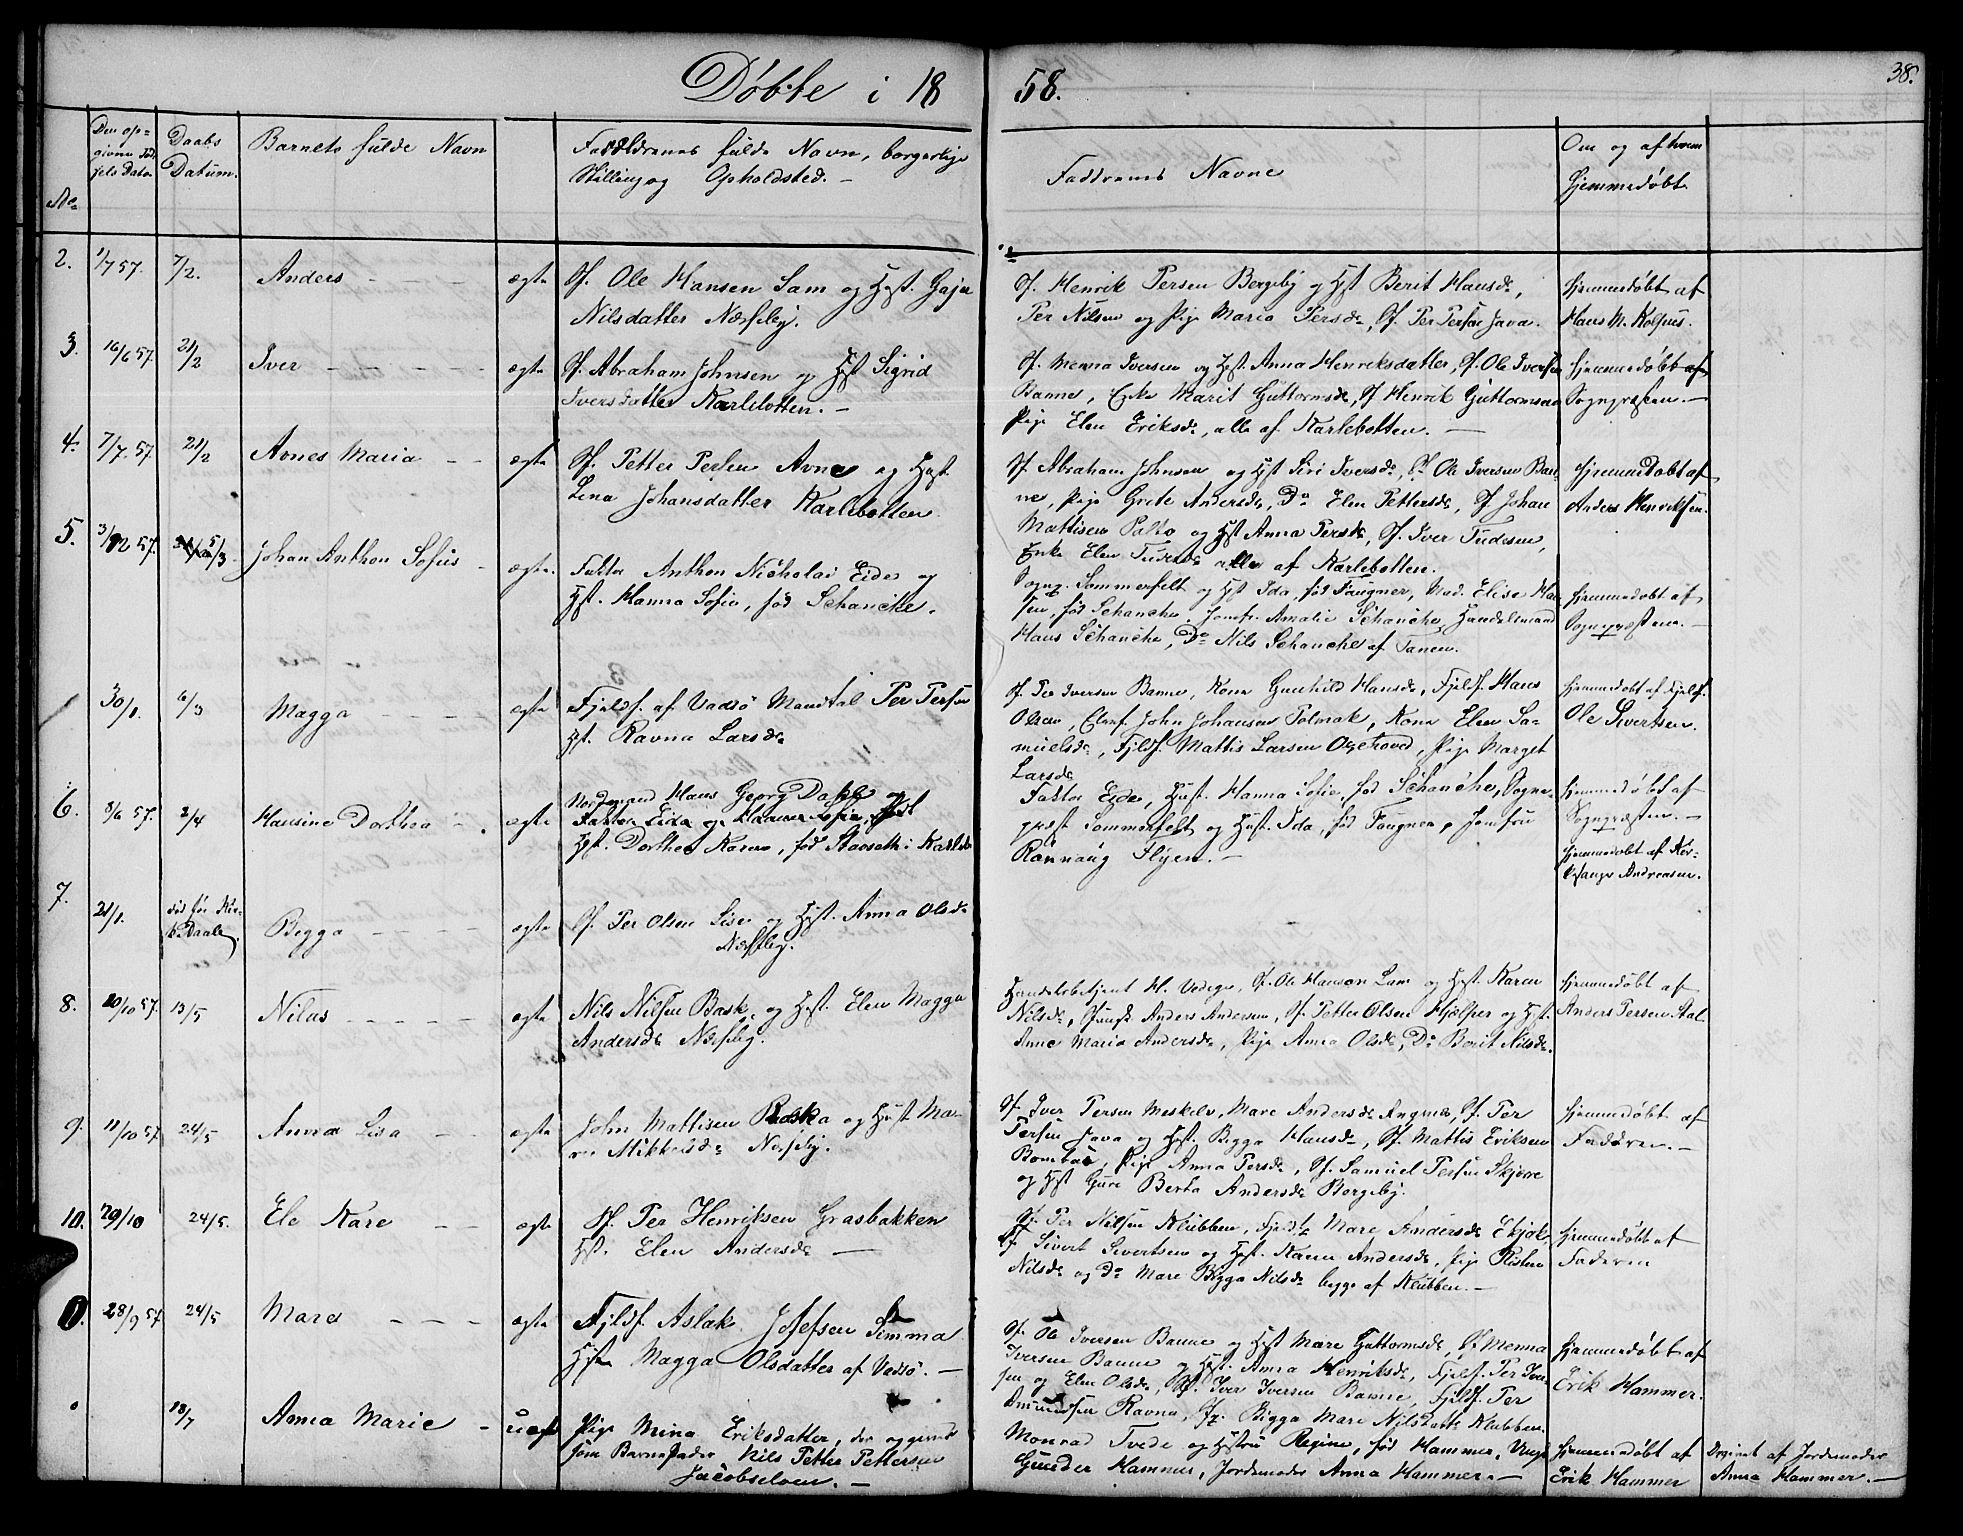 Døbte i 18 58.
38.
No
Den op-
givne Fød-
sels Datum
Daabs
Datum.
Barnets fulde Navn
Forældrenes fulde Navn, borgerlige
Stilling og Opholdsted. —
Faddrenes Navne
Om og af hvem
Hjemmedøbt
2. 1/7 57. 7/2. Anders — ægte Sf. Ole Hansen Lam og Hst. Gaja
Nilsdatter Næsseby.
Sf. Henrik Persen Bergeby og Hst Berit Hansdr,
Per Nilsen og Pige Maria Persdr, Sf. Per Persen Java.
Hjemmedøbt af
Hans M. Kolpus.
3. 16/6 57. 21/2 Iver — — — — ægte Sf. Abraham Johnsen og Hst Sigrid
Iversdatter Karlebotten. —
Sf. Menna Iversen og Hst. Anna Henriksdatter, Sf. Ole Iversen
Banne, Enke Marit Guttormsdr, Sf Henrik Guttormsen
Pige Elen Eriksdr, alle af Karlebotten. —
Hjemmedøbt af
Sognpræsten. —
4. 7/7 57. 21/2 Avnes Maria — — ægte Sf. Petter Persen Avne og Hst.
Lena Johansdatter Karlebotten.
Sf. Abraham Johnsen og Hst Siri Iversdr, Sf. Ole Iversen Ban-
ne, Pige Grete Andersdr, Do Elen Pettersdr, Sf. Johan
Mattisen Palto og Hst Anna Persdr, Sf. Iver Tudesen,
Enke Elen Tudesdr alle af Karlebotten.
Hjemmedøbt af
Anders Henriksen.
5. 3/12 57. 5/3 Johan Anthon Sofus — ægte. Faktor Anthon Nicholai Eide og
Hst. Hanna Sofie, fød Schancke.
Sogpr. Sommerfelt og Hst Ida, fød Faugner, Mad. Elise Han-
sen, fød Schanche, Jomfr. Amalie Schanche, Handelsmand
Hans Schanche, Do Nils Schanche af Tanen.
Hjemmedøbt af
Sognepræsten. —
30/1. 6/3 Magga — — — — ægte Fjeldf. af Vadsø Mandtal Per Persen
Hst. Ravna Larsdr
Sf. Per Iversen Banne, Kone Gunhild Hansdr, Fjeldf. Hans
Olsen, Elvef. John Johansen Polmak, Kone Elen Sa-
muelsdr, Fjldf. Mattis Larsen Oxehoved, Pige Marget
Larsdr
Hjemmedøbt af Fjeldf.
Ole Sivertsen.
6. 8/6 57. 2/4 Hansine Dorthea — ægte Nordmand Hans Georg Dahl og
Faktor Eide og Hanna Sofie, fød
Hst. Dorthea Karen, fød Stavseth i Karlebt
Faktor Eide, Hust. Hanna Sofie, fød Schanche, Sogne-
præst Sommerfelt og Hust. Ida, fød Faugner, Jomfru
Rønnaug Flyen. —
Hjemmedøbt af
Sognpræsten. —
7. 21/1. død før Kir-
ke Daab. Bigga — — — — ægte Sf. Per Olsen Lise og Hst. Anna Olsdr
Næsseby.
Hjemmedøbt af Kir-
kesanger Andreasen.
8. 20/10 57. 13/5 Nilas — — — — ægte Nils Nilsen Bask, og Hst. Elen Magga
Andersdr Næsseby.
Handelsbetjent H. Vedege, Sf. Ole Hansen Lam og Hst. Karen
Nilsdr, Ungk Anders Andersen, Sf. Petter Olsen Hjelper og Hst.
Anne Maria Andersdr, Pige Anna Olsdr, Do Berit Nilsdr.
Hjemmedøbt af
Anders Persen Aal.
9. 11/10 57. 24/5 Anna Lisa — — ægte John Mattisen Raska og Hust Ma-
ren Mikkelsdr Næsseby.
Sf. Iver Persen Meskelv, Mare Andersdr Angnes, Sf. Per
Persen Java og Hst. Bigga Hansdr, Sf. Mattis Eriksen
Bombas, Pige Anna Persdr, Sf. Samuel Persen Skjøre
og Hst Gure Berta Andersdr Bergeby.
Hjemmedøbt af
Faderen. —
10. 29/10 24/5. Ele Kare — — ægte Sf. Per Henriksen Grasbakken
Hst. Elen Andersdr —
Sf. Per Nilsen Klubben, Fjeldf Mare Andersdr Ekjok,
Sf. Sivert Sivertsen og Hst. Karen Andersdr, Pige Risten
Nilsdr og Do Mare Bigga Nilsdr begge af Klubben. —
Hjemmedøbt af
Faderen
11. 28/9 57. 24/5 Mare — — — ægte Fjldf. Aslak Josefsen Simma
Hst Magga Olsdatter af Vadsø. —
Sf. Ole Iversen Banne og Hst Mare Guttormsdr, Sf Menna
Iversen Banne og Hst. Anna Henriksdr, Fjeldf. Per Iver-
sen og Elen Olsdr, Sf. Iver Iversen Banne, Fjeldf. Per
Ammundsen Ravna, Pg. Bigga Mare Nilsdatter Klubben.
Hjemmedøbt af
Erik Hammer.
18/7 Anna Marie — uægte Pige Mina Eriksdatter, der opgiver
som Barnefader Nils Petter Pettersen
Jacobselven. —
Monrad Tvede og Hstru Regine, fød Hammer, Ungk
Gunder Hammer, Jordemoder Anna Hammer. —
Hjemmedøbt af
Erik Hammer
Angivet af Jordemoder
Anna Hammer. —